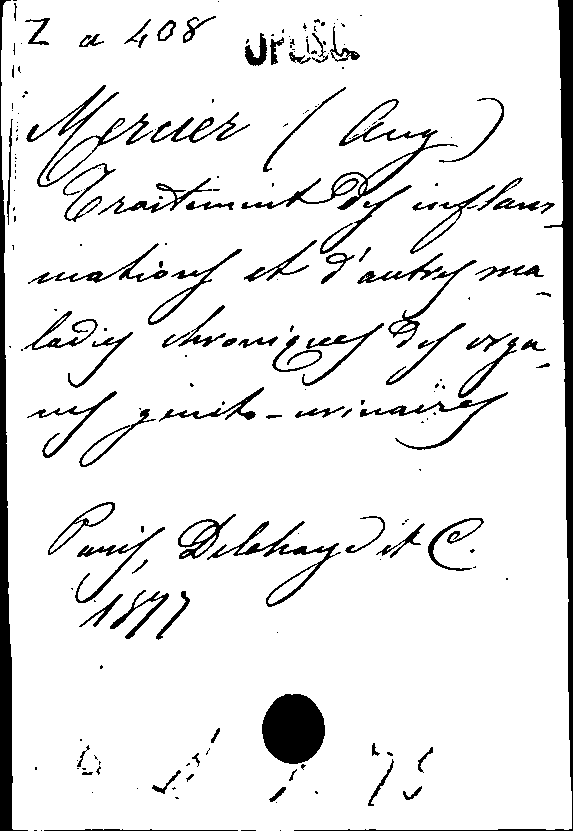 Z a 408 OPUSC.
Mercier (Aug)
Traitement des inflam-
mations et d'autres ma-
ladies chroniques des orga-
nes genito-urinaires
Paris, Delahaye et C.
1877